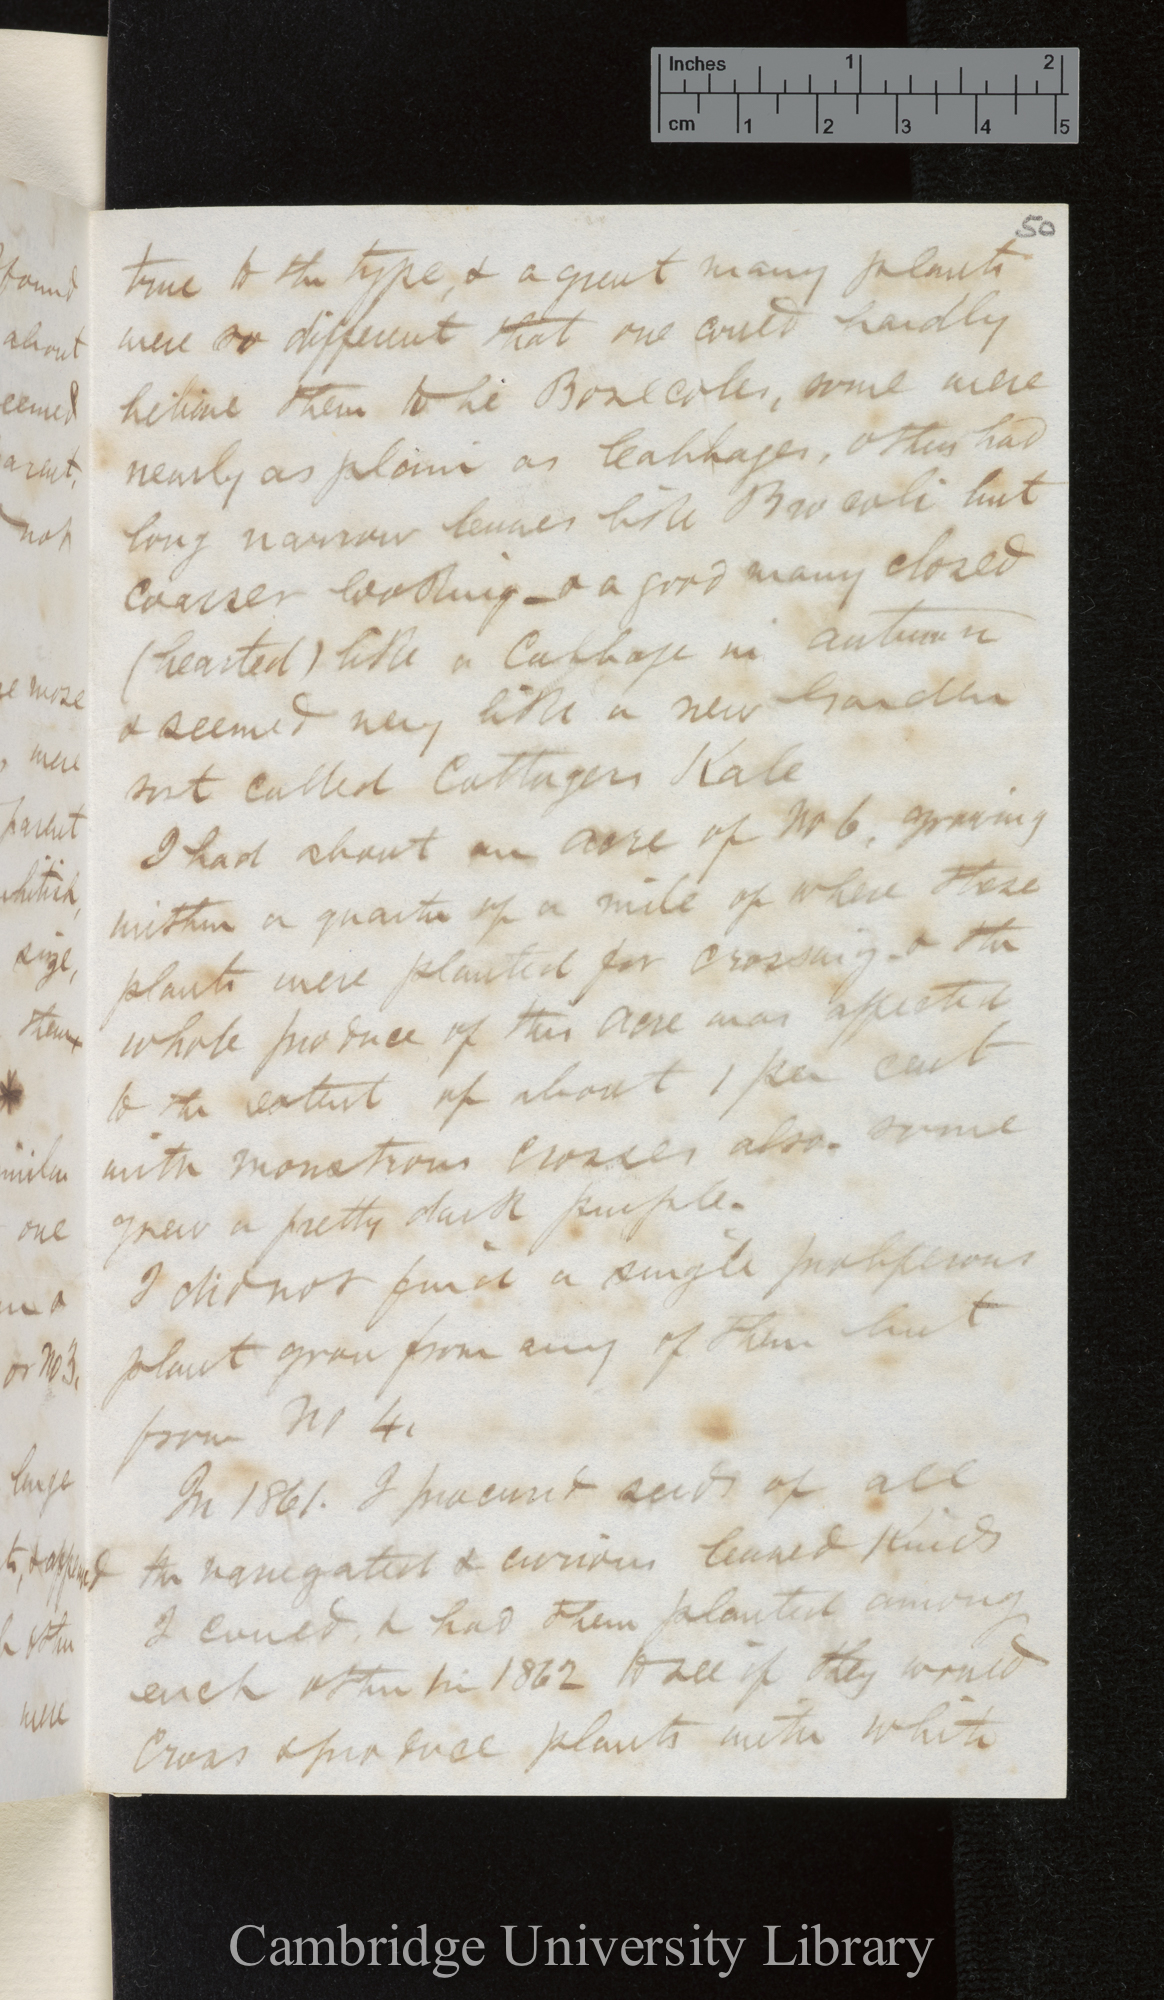 Inches 1 2
cm 1 2 3 4 5
50
true to the type, & a great many plants
were so different that one could hardly
believe them to be Borecoles, some were
nearly as plain as Cabbages, others had
long narrow leaves like Brocoli but
coarser looking - & a good many closed
(hearted) like a Cabbage in autumn
& seemed very like a new Garden
sort called Cottagers Kale
I had about an acre of No 6, growing
within a quarter of a mile of where these
plants were planted for crossing - & the
whole produce of this acre was affected
to the extent of about 1 per cent
with monstrous crosses also - some
grew a pretty dark purple -
I did not find a single proliferous
plant grow from any of them but
from No 4.
In 1861. I procured seeds of all
the variegated & curious leaved Kinds
I could, & had them planted among
each other in 1862 to see if they would
Cross & produce plants with white
found
about
not
more
were
size,
them
one
or No 3.
large
were
Cambridge University Library